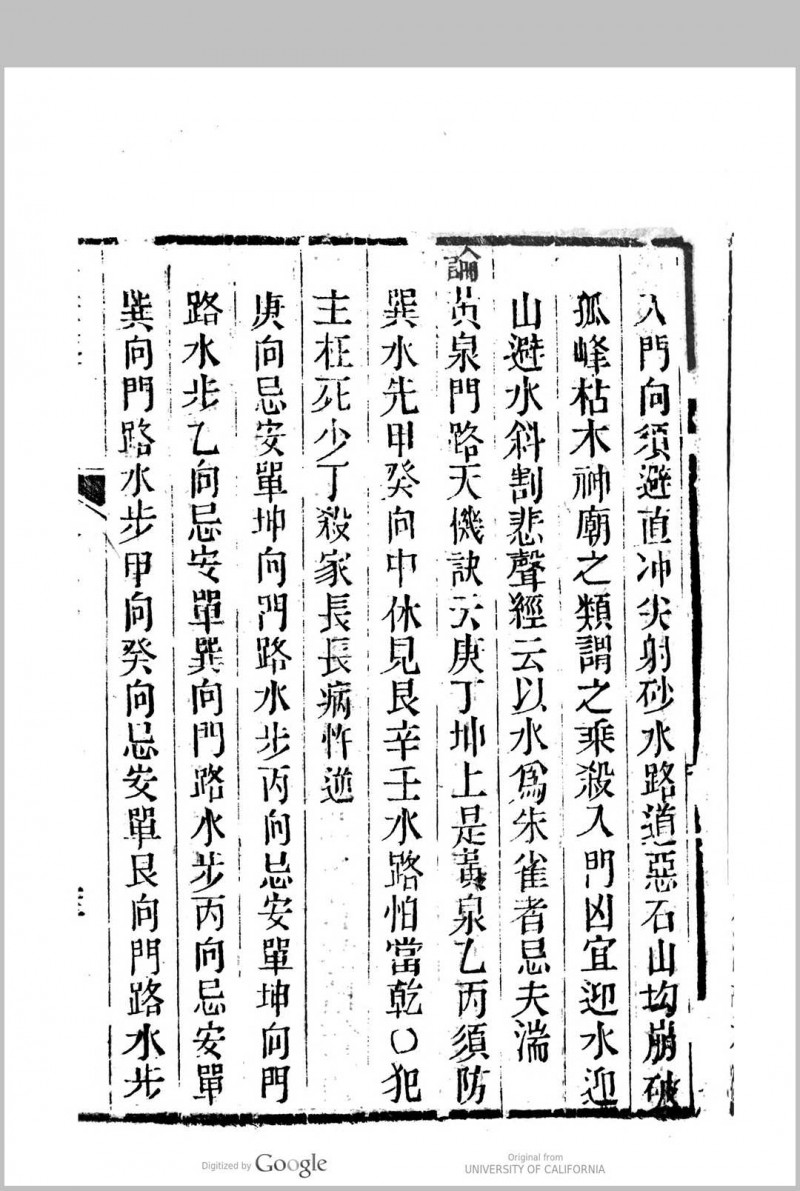 入門向須避直冲尖射砂水路道惡石山坳崩破
孤峰枯木神廟之類謂之乘殺入門凶宜迎水迎
山避水斜割悲聲經云以水為朱雀者忌夫湍
論黃泉門路天機訣云庚丁坤上是黃泉乙丙須防
巽水先甲癸向中休見艮辛壬水路怕當乾〇犯
主枉死少丁殺家長長病忤逆
庚向忌安單坤向門路水步丙向忌安單坤向門
路水步乙向忌安單巽向門路水步丙向忌安單
巽向門路水步甲向癸向忌安單艮向門路水步
Digitized by Google
Original from
UNIVERSITY OF CALIFORNIA